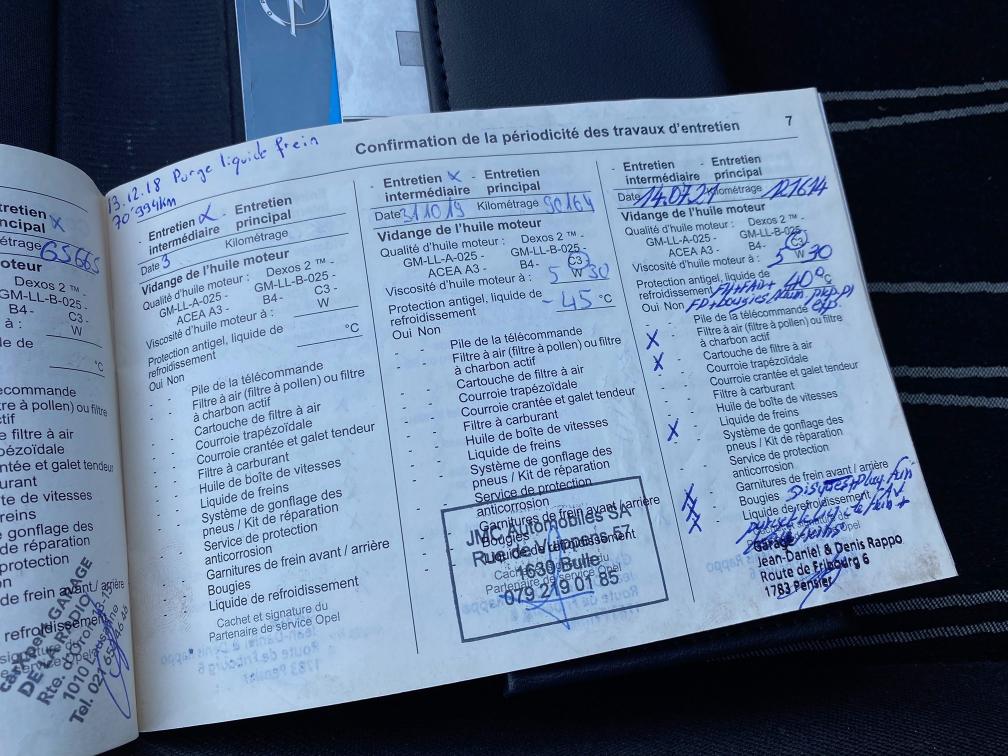 Confirmation de la périodicité des travaux d'entretien
7
tretien x
ncipal
métrage 65665
oteur
Dexos 2 ™ -
GM-LL-B-025 -
B4- C3 -
à : W
le de
°C
commande
tre à pollen) ou filtre
ctif
e filtre à air
pézoïdale
ntée et galet tendeur
urant
te de vitesses
reins
gonflage des
de réparation
protection
n
de frein avant / arrière
refroidissement
GARAGE
Rte. d'Oron
1010 Lausanne
Tel. 021
13.12.18 Purge liquide frein
70'994km
- Entretien x - Entretien
intermédiaire principal
Date 3 Kilométrage
Vidange de l'huile moteur
Qualité d'huile moteur : Dexos 2 ™ -
GM-LL-A-025 - GM-LL-B-025 -
ACEA A3 - B4- C3 -
Viscosité d'huile moteur à : W
Protection antigel, liquide de
refroidissement °C
Oui Non
- - Pile de la télécommande
- - Filtre à air (filtre à pollen) ou filtre
à charbon actif
- - Cartouche de filtre à air
- - Courroie trapézoïdale
- - Courroie crantée et galet tendeur
- - Filtre à carburant
- - Huile de boîte de vitesses
- - Liquide de freins
- - Système de gonflage des
pneus / Kit de réparation
- - Service de protection
anticorrosion
- - Garnitures de frein avant / arrière
- - Bougies
- - Liquide de refroidissement
Cachet et signature du
Partenaire de service Opel
- Entretien x - Entretien
intermédiaire principal
Date 311019 Kilométrage 90164
Vidange de l'huile moteur
Qualité d'huile moteur : Dexos 2 ™ -
GM-LL-A-025 - GM-LL-B-025 -
ACEA A3 - B4- C3 -
Viscosité d'huile moteur à : 5 W 30
Protection antigel, liquide de
refroidissement - 45 °C
Oui Non
- - Pile de la télécommande
- - Filtre à air (filtre à pollen) ou filtre
à charbon actif
- - Cartouche de filtre à air
- - Courroie trapézoïdale
- - Courroie crantée et galet tendeur
- - Filtre à carburant
- - Huile de boîte de vitesses
- - Liquide de freins
- - Système de gonflage des
pneus / Kit de réparation
- - Service de protection
anticorrosion
- - Garnitures de frein avant / arrière
- - Bougies
- - Liquide de refroidissement
Cachet et signature du
Partenaire de service Opel
JMC Automobiles SA
Rue de Vuippens 57
1630 Bulle
079 219 01 85
- Entretien - Entretien
intermédiaire principal
Date 14.07.21 Kilométrage 121614
Vidange de l'huile moteur
Qualité d'huile moteur : Dexos 2 ™ -
GM-LL-A-025 - GM-LL-B-025 -
ACEA A3 - B4- C3 -
Viscosité d'huile moteur à : 5 W 30
Protection antigel, liquide de
refroidissement 40° °C
Oui Non
Pile de la télécommande
x - Filtre à air (filtre à pollen) ou filtre
à charbon actif
x - Cartouche de filtre à air
Courroie trapézoïdale
Courroie crantée et galet tendeur
Filtre à carburant
Huile de boîte de vitesses
x - Liquide de freins
Système de gonflage des
pneus / Kit de réparation
Service de protection
anticorrosion
x - Garnitures de frein avant / arrière
x - Bougies
x - Liquide de refroidissement
Garage
Jean-Daniel & Denis Rappo
Route de Fribourg 6
1783 Pensier